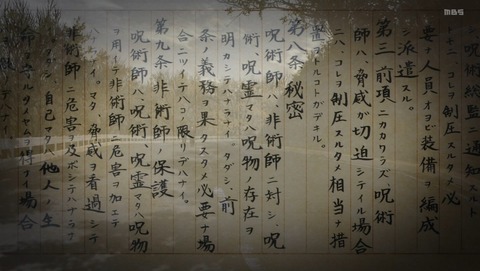 MBS
呪術総監ニ通知スルト
トモニ、コレヲ制圧スルタメ必
要ナ人員、オヨビ装備ヲ編成
シ派遣スル。
第三 前項ニカカワラズ、呪術
師ハ、脅威が切迫シテイル場合
ニハ、コレヲ制圧スルタメ相当ナ措
置ヲトルコトガデキル。
第八条 秘密
呪術師ハ、非術師ニ対シ、呪
術、呪霊マタハ呪物ノ存在ヲ
明カシテハナラナイ。タダシ、前
条ノ義務ヲ果タスタメ必要ナ場
合ニツイテハコノ限リデハナイ。
第九条 非術師ノ保護
呪術師ハ呪術、呪霊マタハ呪物
ヲ用イテ非術師ニ危害ヲ加エテ
ハナラナイ。マタ、脅威ヲ看過シテ
非術師ニ危害ヲ及ボシテハナラナ
イ。タダシ、自己マタハ他人ノ生
命